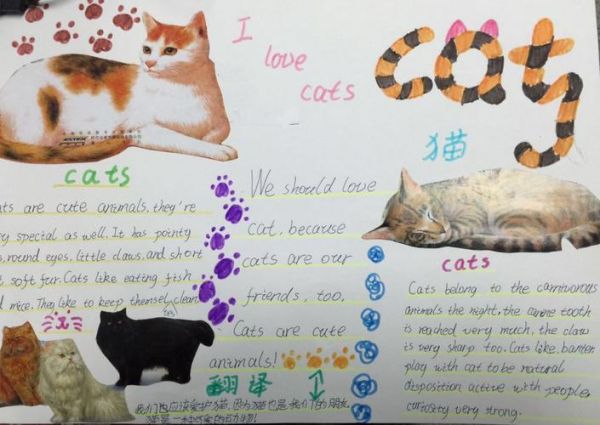 I
love
cats
cats
猫
cats
cats are cute animals, they're
very special as well. It has pointy
round eyes, little claws, and short
soft fur. Cats like eating fish
mice. They like to keep themsel clean
We should love
cat, because
cats are our
friends, too.
Cats are cute
animals!
翻译
我们也应该爱护猫,因为猫也是我们的朋友,
猫是一种可爱的动物!
cats
Cats belong to the carnivorous
animals the night, the canine tooth
is reached very much, the claw
is very sharp too. Cats like banter,
play with cat to be natural
disposition active with people,
curiosity very strong.